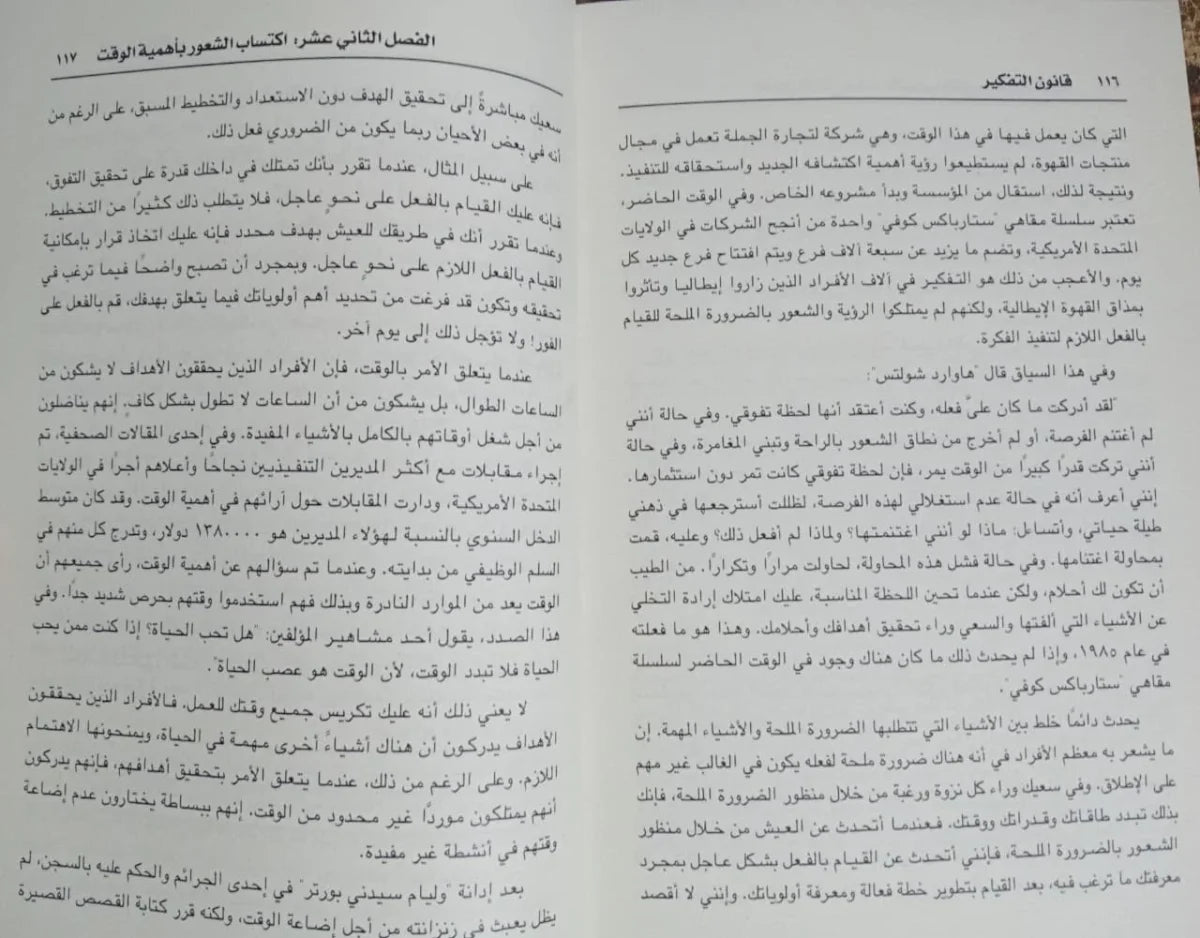 ١١٦ قانون التفكير
التي كان يعمل فيها في هذا الوقت، وهي شركة لتجارة الجملة تعمل في مجال
منتجات القهوة، لم يستطيعوا رؤية أهمية اكتشافه الجديد واستحقاقه للتنفيذ.
ونتيجة لذلك، استقال من المؤسسة وبدأ مشروعه الخاص. وفي الوقت الحاضر،
تعتبر سلسلة مقاهي "ستارباكس كوفي" واحدة من أنجح الشركات في الولايات
المتحدة الأمريكية، وتضم ما يزيد عن سبعة آلاف فرع ويتم افتتاح فرع جديد كل
يوم. والأعجب من ذلك هو التفكير في آلاف الأفراد الذين زاروا إيطاليا وتأثروا
بمذاق القهوة الإيطالية، ولكنهم لم يمتلكوا الرؤية والشعور بالضرورة الملحة للقيام
بالفعل اللازم لتنفيذ الفكرة.
وفي هذا السياق قال "هاوارد شولتس":
"لقد أدركت ما كان عليَّ فعله، وكنت أعتقد أنها لحظة تفوقي. وفي حالة أنني
لم أغتنم الفرصة، أو لم أخرج من نطاق الشعور بالراحة وتبني المغامرة، وفي حالة
أنني تركت قدرًا كبيرًا من الوقت يمر، فإن لحظة تفوقي كانت تمر دون استثمارها.
إنني أعرف أنه في حالة عدم استغلالي لهذه الفرصة، لظللت أسترجعها في ذهني
طيلة حياتي، وأتساءل: ماذا لو أنني اغتنمتها؟ ولماذا لم أفعل ذلك؟ وعليه، قمت
بمحاولة اغتنامها. وفي حالة فشل هذه المحاولة، لحاولت مرارًا وتكرارًا. من الطيب
أن تكون لك أحلام، ولكن عندما تحين اللحظة المناسبة، عليك امتلاك إرادة التخلي
عن الأشياء التي ألفتها والسعي وراء تحقيق أهدافك وأحلامك. وهذا هو ما فعلته
في عام ١٩٨٥، وإذا لم يحدث ذلك ما كان هناك وجود في الوقت الحاضر لسلسلة
مقاهي "ستارباكس كوفي".
يحدث دائمًا خلط بين الأشياء التي تتطلبها الضرورة الملحة والأشياء المهمة. إن
ما يشعر به معظم الأفراد في أنه هناك ضرورة ملحة لفعله يكون في الغالب غير مهم
على الإطلاق. وفي سعيك وراء كل نزوة ورغبة من خلال منظور الضرورة الملحة، فإنك
بذلك تبدد طاقاتك وقدراتك ووقتك. فعندما أتحدث عن العيش من خلال منظور
الشعور بالضرورة الملحة، فإنني أتحدث عن القيام بالفعل بشكل عاجل بمجرد
معرفتك ما ترغب فيه، بعد القيام بتطوير خطة فعالة ومعرفة أولوياتك. وإنني لا أقصد
الفصل الثاني عشر: اكتساب الشعور بأهمية الوقت ١١٧
سعيك مباشرةً إلى تحقيق الهدف دون الاستعداد والتخطيط المسبق، على الرغم من
أنه في بعض الأحيان ربما يكون من الضروري فعل ذلك.
على سبيل المثال، عندما تقرر بأنك تمتلك في داخلك قدرة على تحقيق التفوق،
فإنه عليك القيام بالفعل على نحوٍ عاجل، فلا يتطلب ذلك كثيرًا من التخطيط.
وعندما تقرر أنك في طريقك للعيش بهدف محدد فإنه عليك اتخاذ قرار بإمكانية
القيام بالفعل اللازم على نحوٍ عاجل. وبمجرد أن تصبح واضحًا فيما ترغب في
تحقيقه وتكون قد فرغت من تحديد أهم أولوياتك فيما يتعلق بهدفك، قم بالفعل على
الفور! ولا تؤجل ذلك إلى يوم آخر.
عندما يتعلق الأمر بالوقت، فإن الأفراد الذين يحققون الأهداف لا يشكون من
الساعات الطوال، بل يشكون من أن الساعات لا تطول بشكل كافٍ. إنهم يناضلون
من أجل شغل أوقاتهم بالكامل بالأشياء المفيدة. وفي إحدى المقالات الصحفية، تم
إجراء مقابلات مع أكثر المديرين التنفيذيين نجاحًا وأعلاهم أجرًا في الولايات
المتحدة الأمريكية، ودارت المقابلات حول آرائهم في أهمية الوقت. وقد كان متوسط
الدخل السنوي بالنسبة لهؤلاء المديرين هو ١٣٨٠٠٠٠ دولار، وتدرج كل منهم في
السلم الوظيفي من بدايته. وعندما تم سؤالهم عن أهمية الوقت، رأى جميعهم أن
الوقت يعد من الموارد النادرة وبذلك فهم استخدموا وقتهم بحرص شديد جدًا. وفي
هذا الصدد، يقول أحد مشاهير المؤلفين: "هل تحب الحياة؟ إذا كنت ممن يحب
الحياة فلا تبدد الوقت، لأن الوقت هو عصب الحياة".
لا يعني ذلك أنه عليك تكريس جميع وقتك للعمل. فالأفراد الذين يحققون
الأهداف يدركون أن هناك أشياءً أخرى مهمة في الحياة، ويمنحونها الاهتمام
اللازم. وعلى الرغم من ذلك، عندما يتعلق الأمر بتحقيق أهدافهم، فإنهم يدركون
أنهم يمتلكون موردًا غير محدود من الوقت. إنهم ببساطة يختارون عدم إضاعة
وقتهم في أنشطة غير مفيدة.
بعد إدانة "وليام سيدني بورتر" في إحدى الجرائم والحكم عليه بالسجن، لم
يظل يعبث في زنزانته من أجل إضاعة الوقت، ولكنه قرر كتابة القصص القصيرة